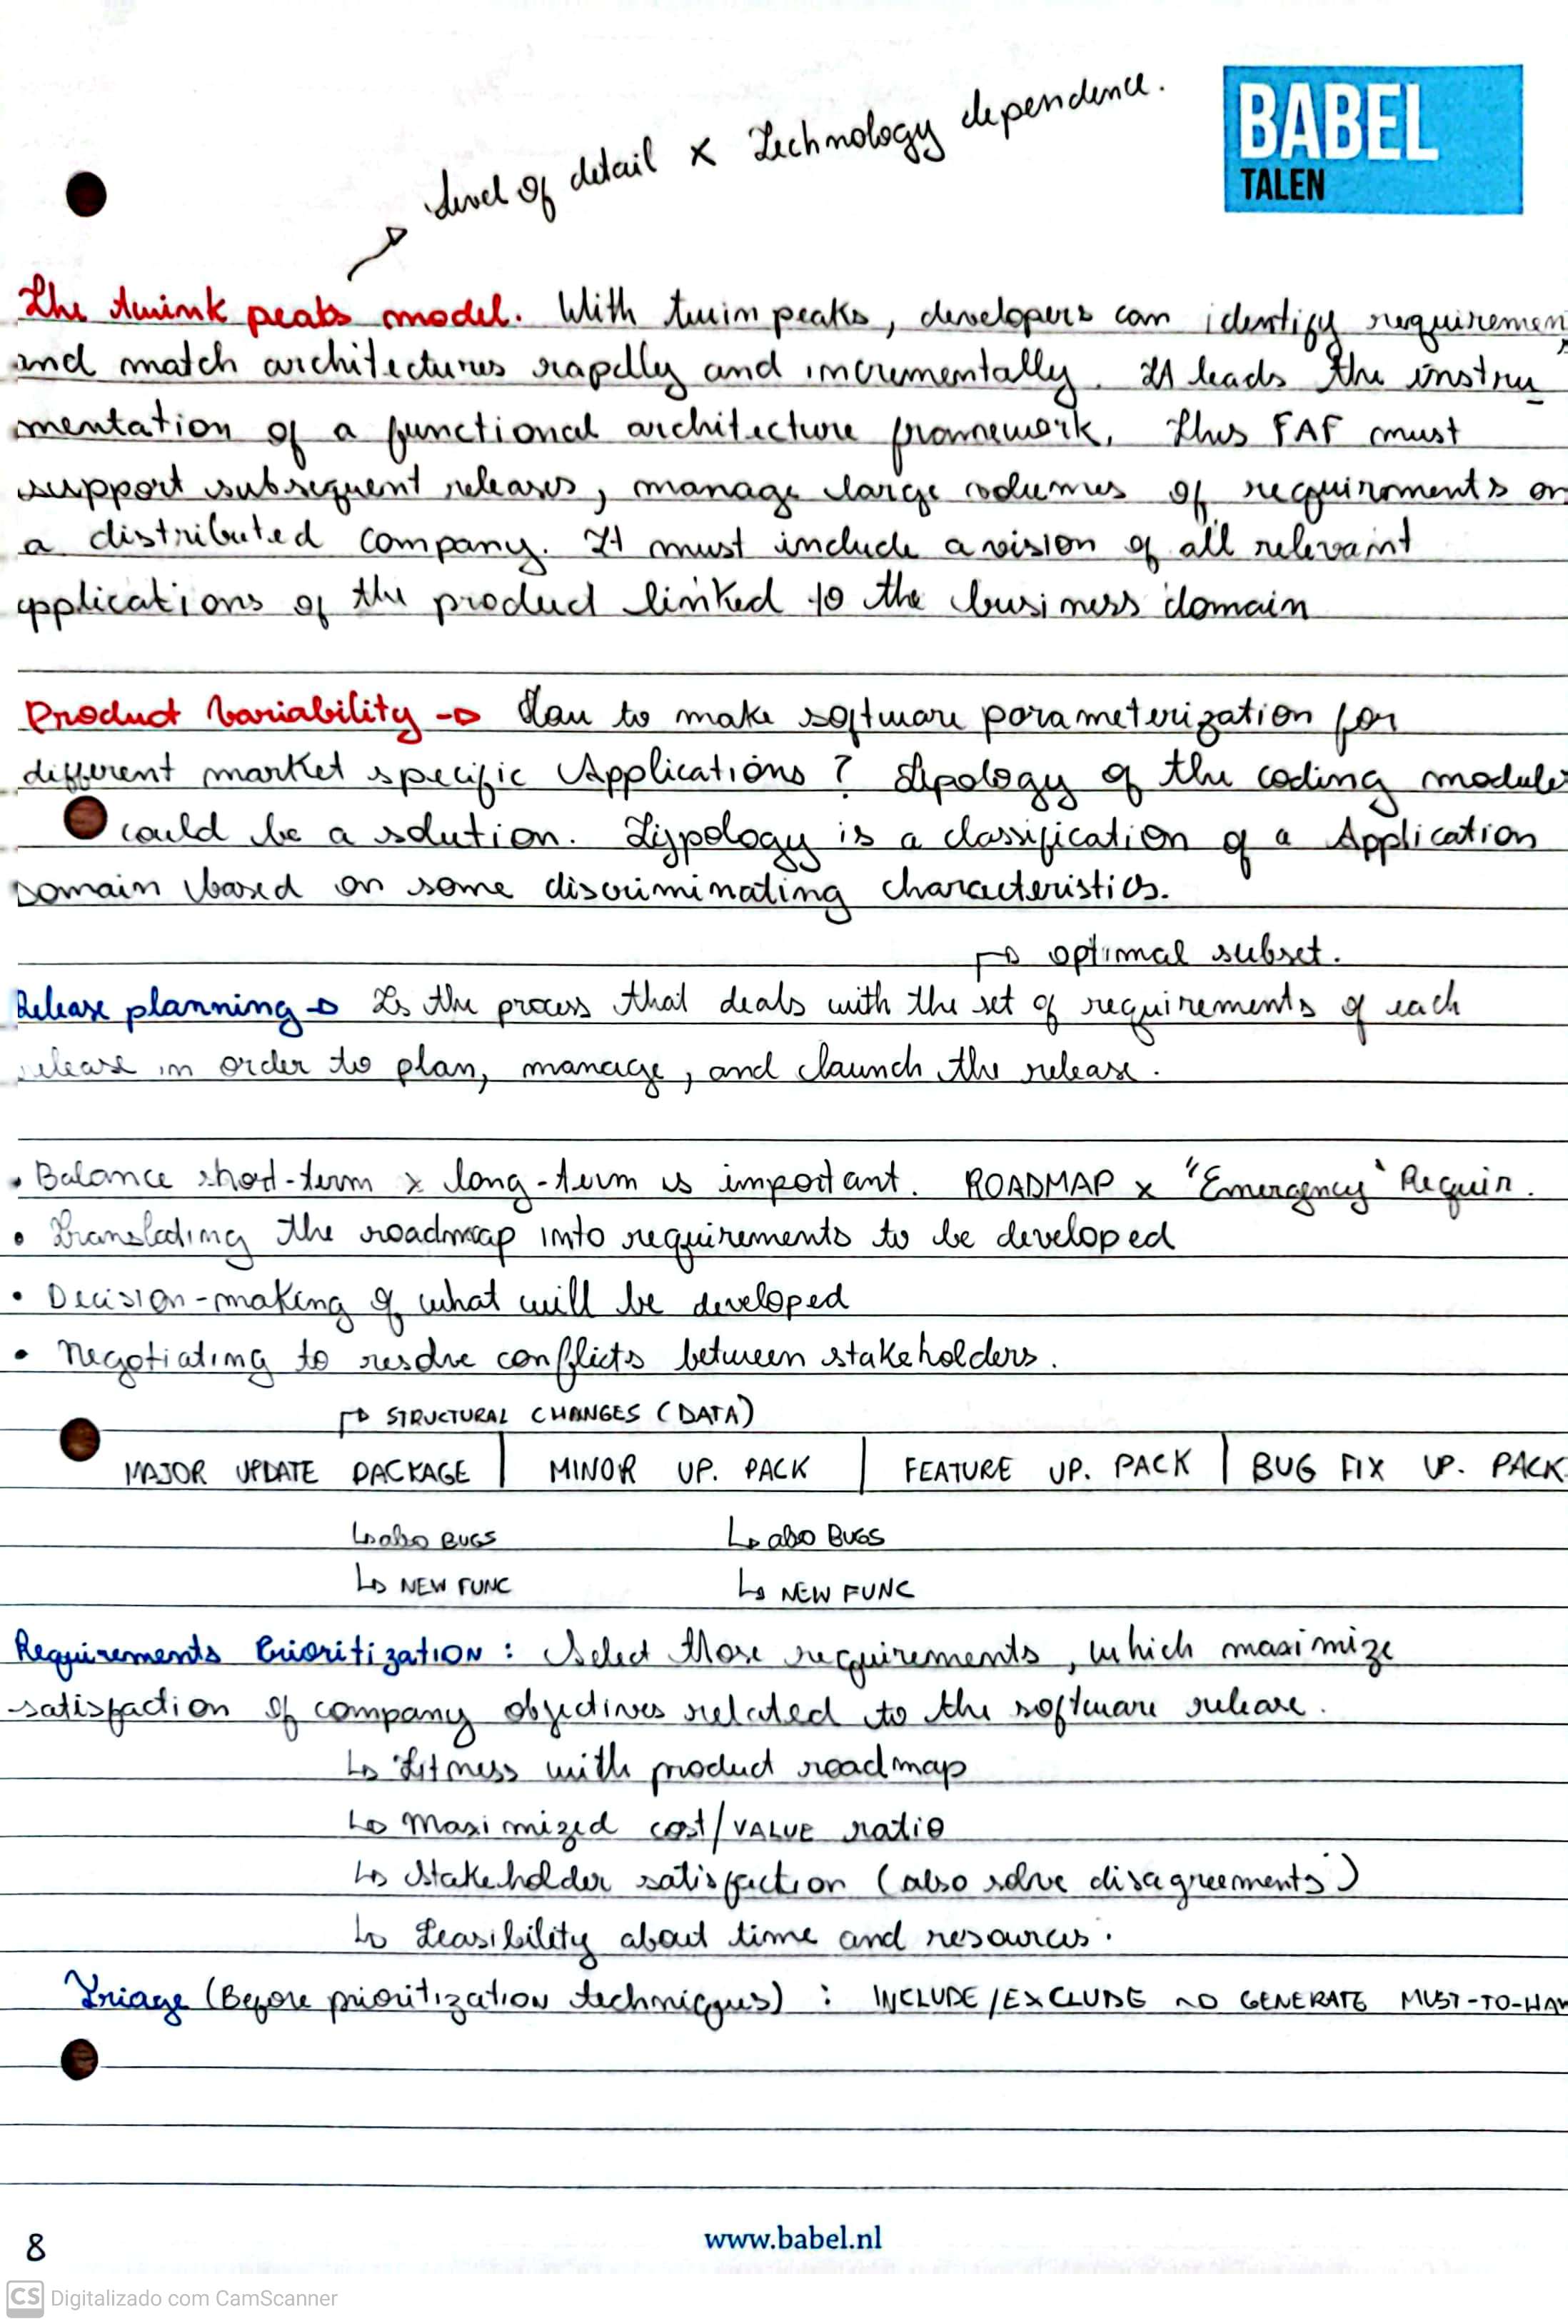 BABEL
TALEN
Level of detail x Technology dependence.
The twink peaks model. With twin peaks, developers can identify requiremen
and match architectures rapdly and incrementally. It leads the instru
mentation of a functional architecture framework. This FAF must
support subsequent releases, manage large volumes of requirements on
a distributed company. It must include a vision of all relevant
applications of the product linked to the business domain
Product Variability → How to make software parameterization for
different market specific Applications? Tipology of the coding modules
could be a solution. Typology is a classification of a Application
Domain based on some discriminating characteristics.
↱ optimal subset.
Release planning → Is the process that deals with the set of requirements of each
release in order to plan, manage, and launch the release.
• Balance short-term x long-term is important. ROADMAP x "Emergency" Requir.
• Translating the roadmap into requirements to be developed
• Decision-making of what will be developed
• Negotiating to resolve conflicts between stakeholders.
↱ STRUCTURAL CHANGES (DATA)
MAJOR UPDATE PACKAGE | MINOR UP. PACK | FEATURE UP. PACK | BUG FIX UP. PACK
↳ also BUGS ↳ also BUGS
↳ NEW FUNC ↳ NEW FUNC
Requirements Prioritization: Select those requirements, which maximize
satisfaction of company objectives related to the software release.
↳ Fitness with product roadmap
↳ Maximized cost/VALUE ratio
↳ Stakeholder satisfaction (also solve disagreements)
↳ Feasibility about time and resources.
Triage (Before prioritization techniques): INCLUDE/EXCLUDE → GENERATE MUST-TO-HAV
www.babel.nl
8
CS Digitalizado com CamScanner